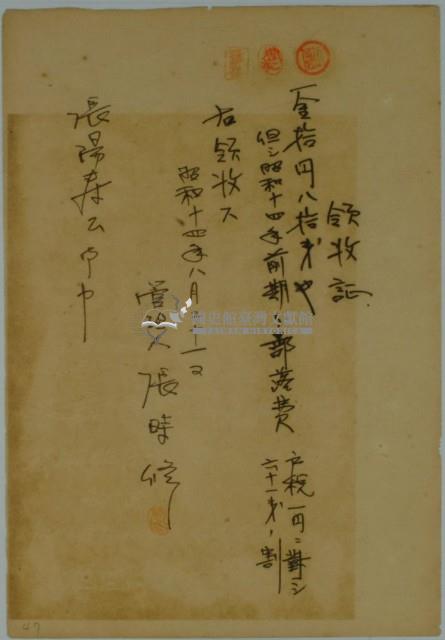 領收証
金拾円八拾才也
但シ昭和十四年前期部落費
戸税一円ニ對シ
六十一才ノ割
右領收ス
昭和十四年八月
張時修
張陽
國史館臺灣文獻館
TAIWAN HISTORICA
47